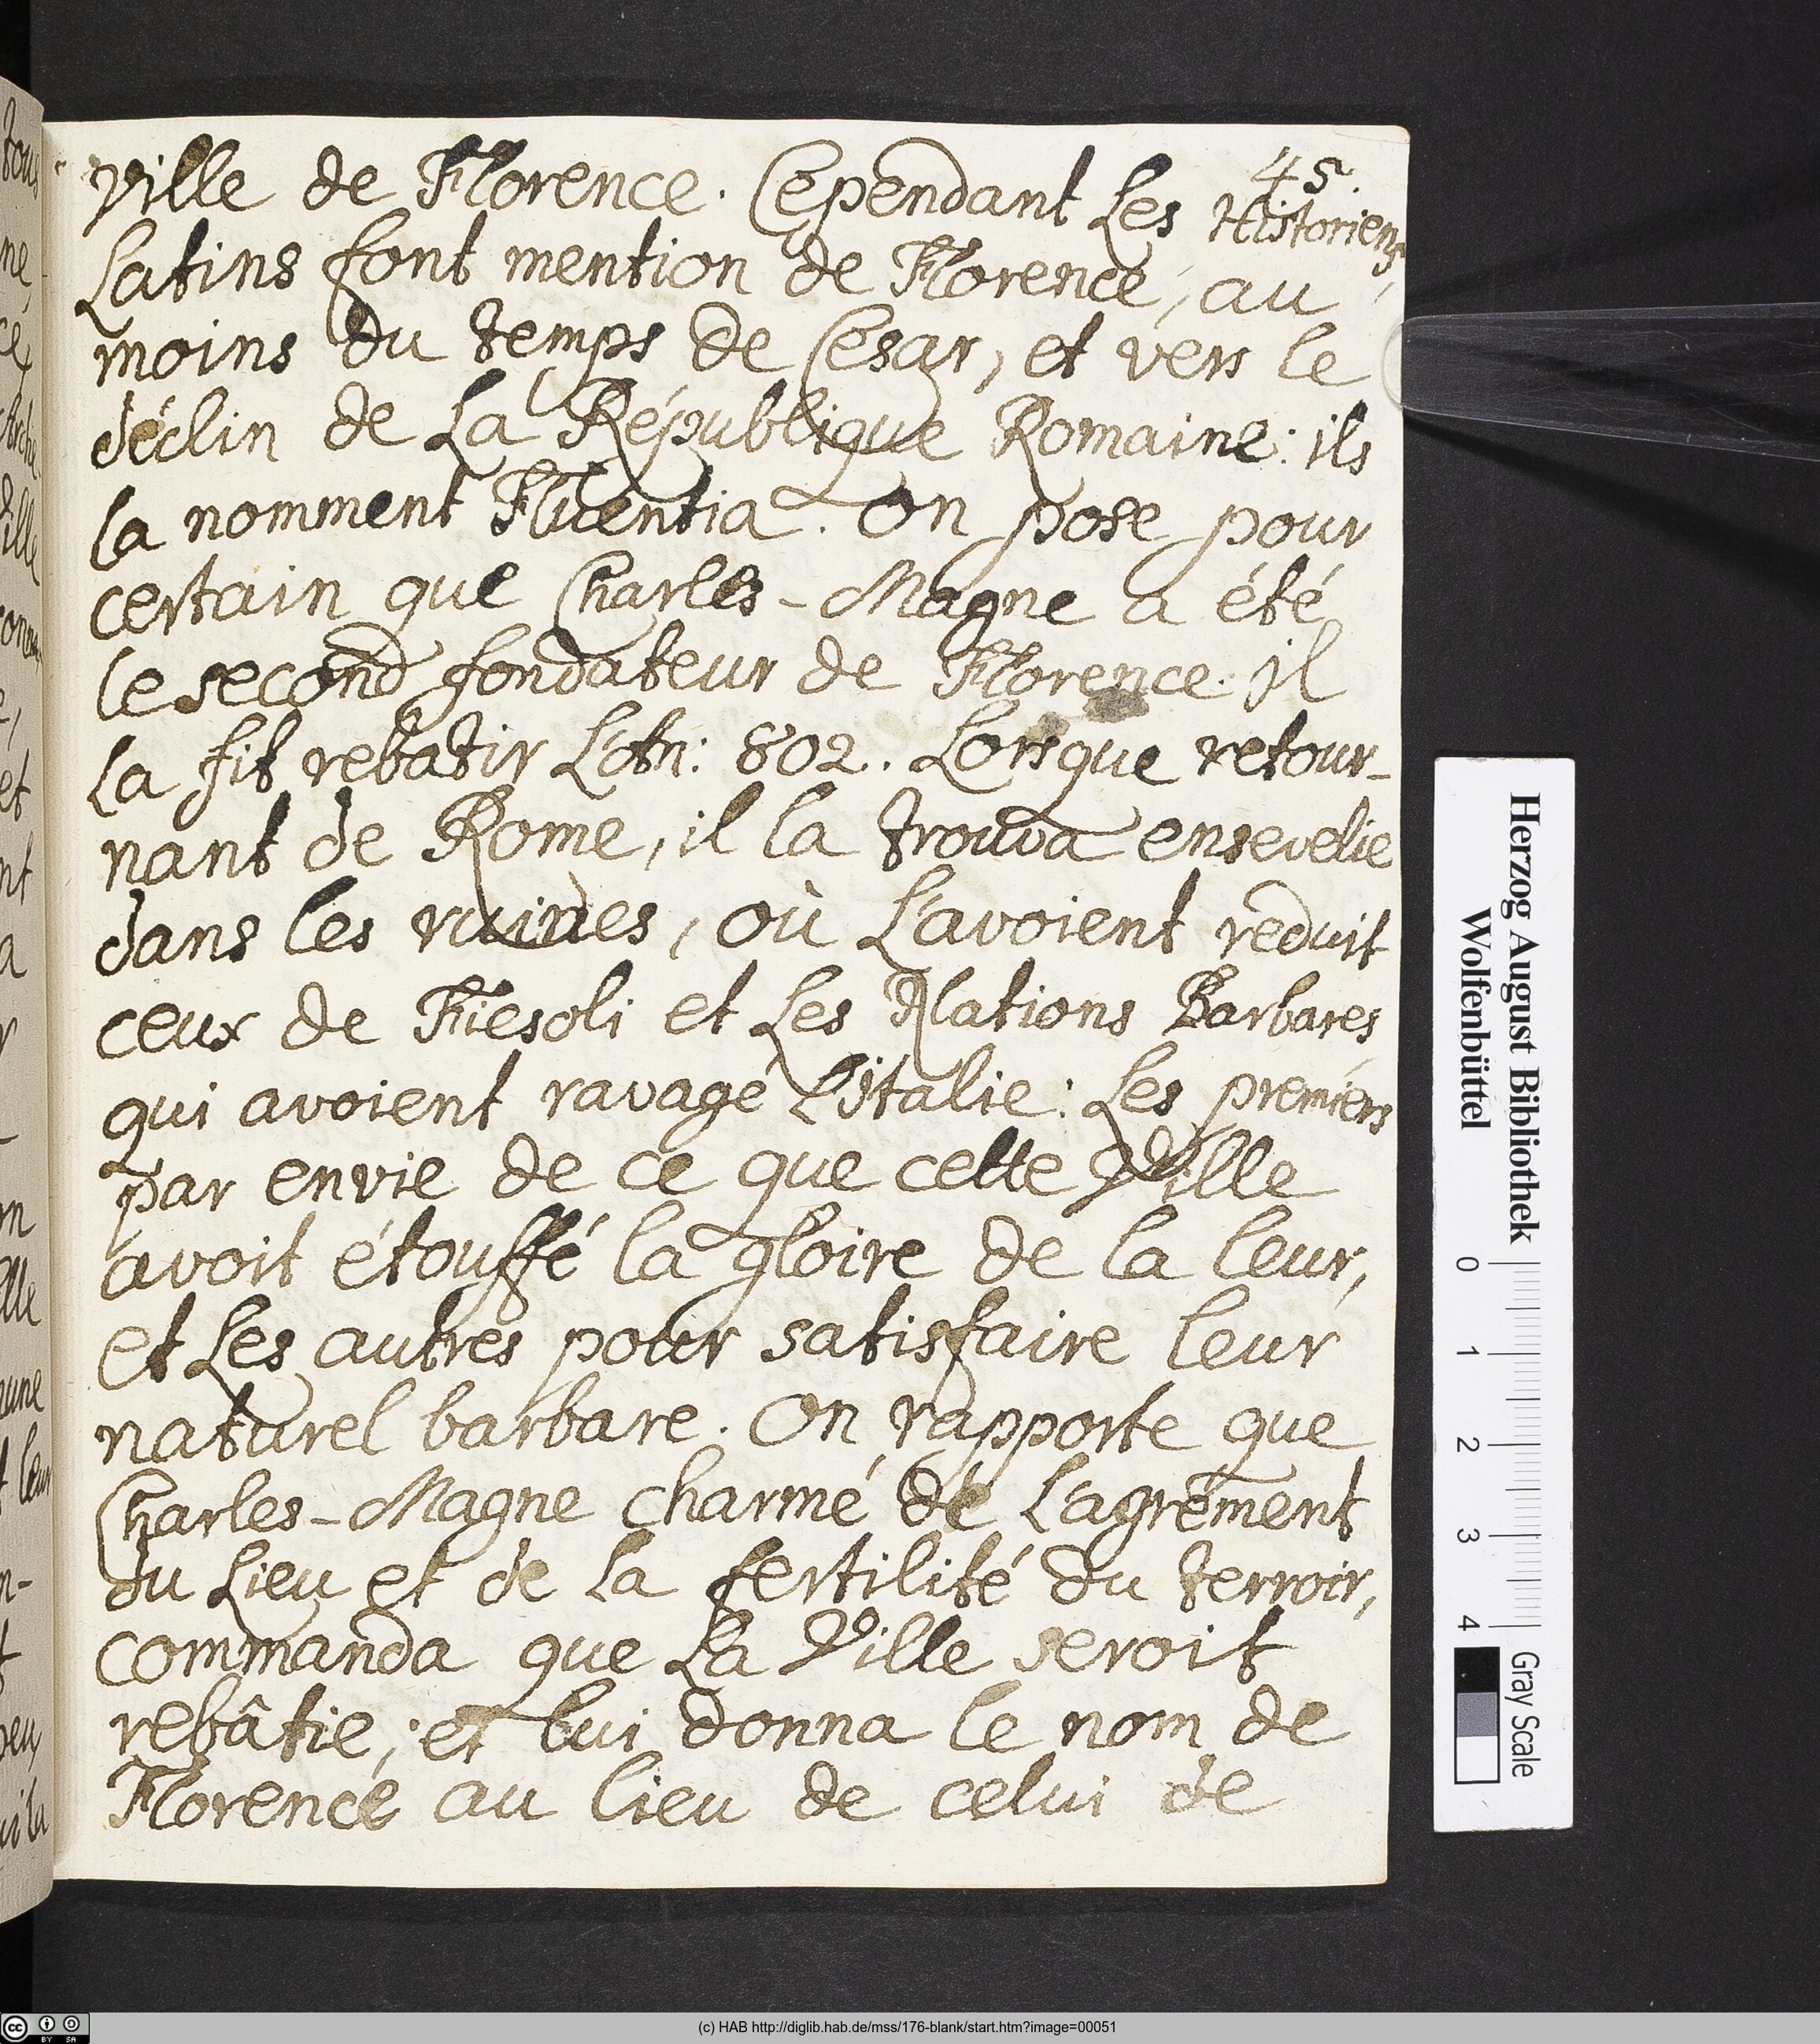 45.
ville de Florence. Cependant Les Historiens
Latins font mention de Florence, au
moins du temps de Cesar, et vers le
déclin de La République Romaine: ils
la nomment Fluentia. On pose pour
certain que Charles-Magne a été
le second fondateur de Florence. il
La fit rebatir L'An: 802. Lorsque retour-
nant de Rome, il la trouva ensevelie
dans les ruines, où L'avoient reduit
ceux de Fiesoli et Les Nations Barbares
qui avoient ravagé L'Italie: Les premiers
par envie de ce que cette Ville
avoit étouffé la gloire de la leur,
et Les autres pour satisfaire leur
naturel barbare. On rapporte que
Charles-Magne charmé de L'agrement
du Lieu et de La fertilité du terroir,
commanda que La Ville seroit
rebâtie; et lui donna le nom de
Florence au lieu de celui de
Herzog August Bibliothek
Wolfenbüttel
0 1 2 3 4
Gray Scale
cc BY SA
(c) HAB http://diglib.hab.de/mss/176-blank/start.htm?image=00051